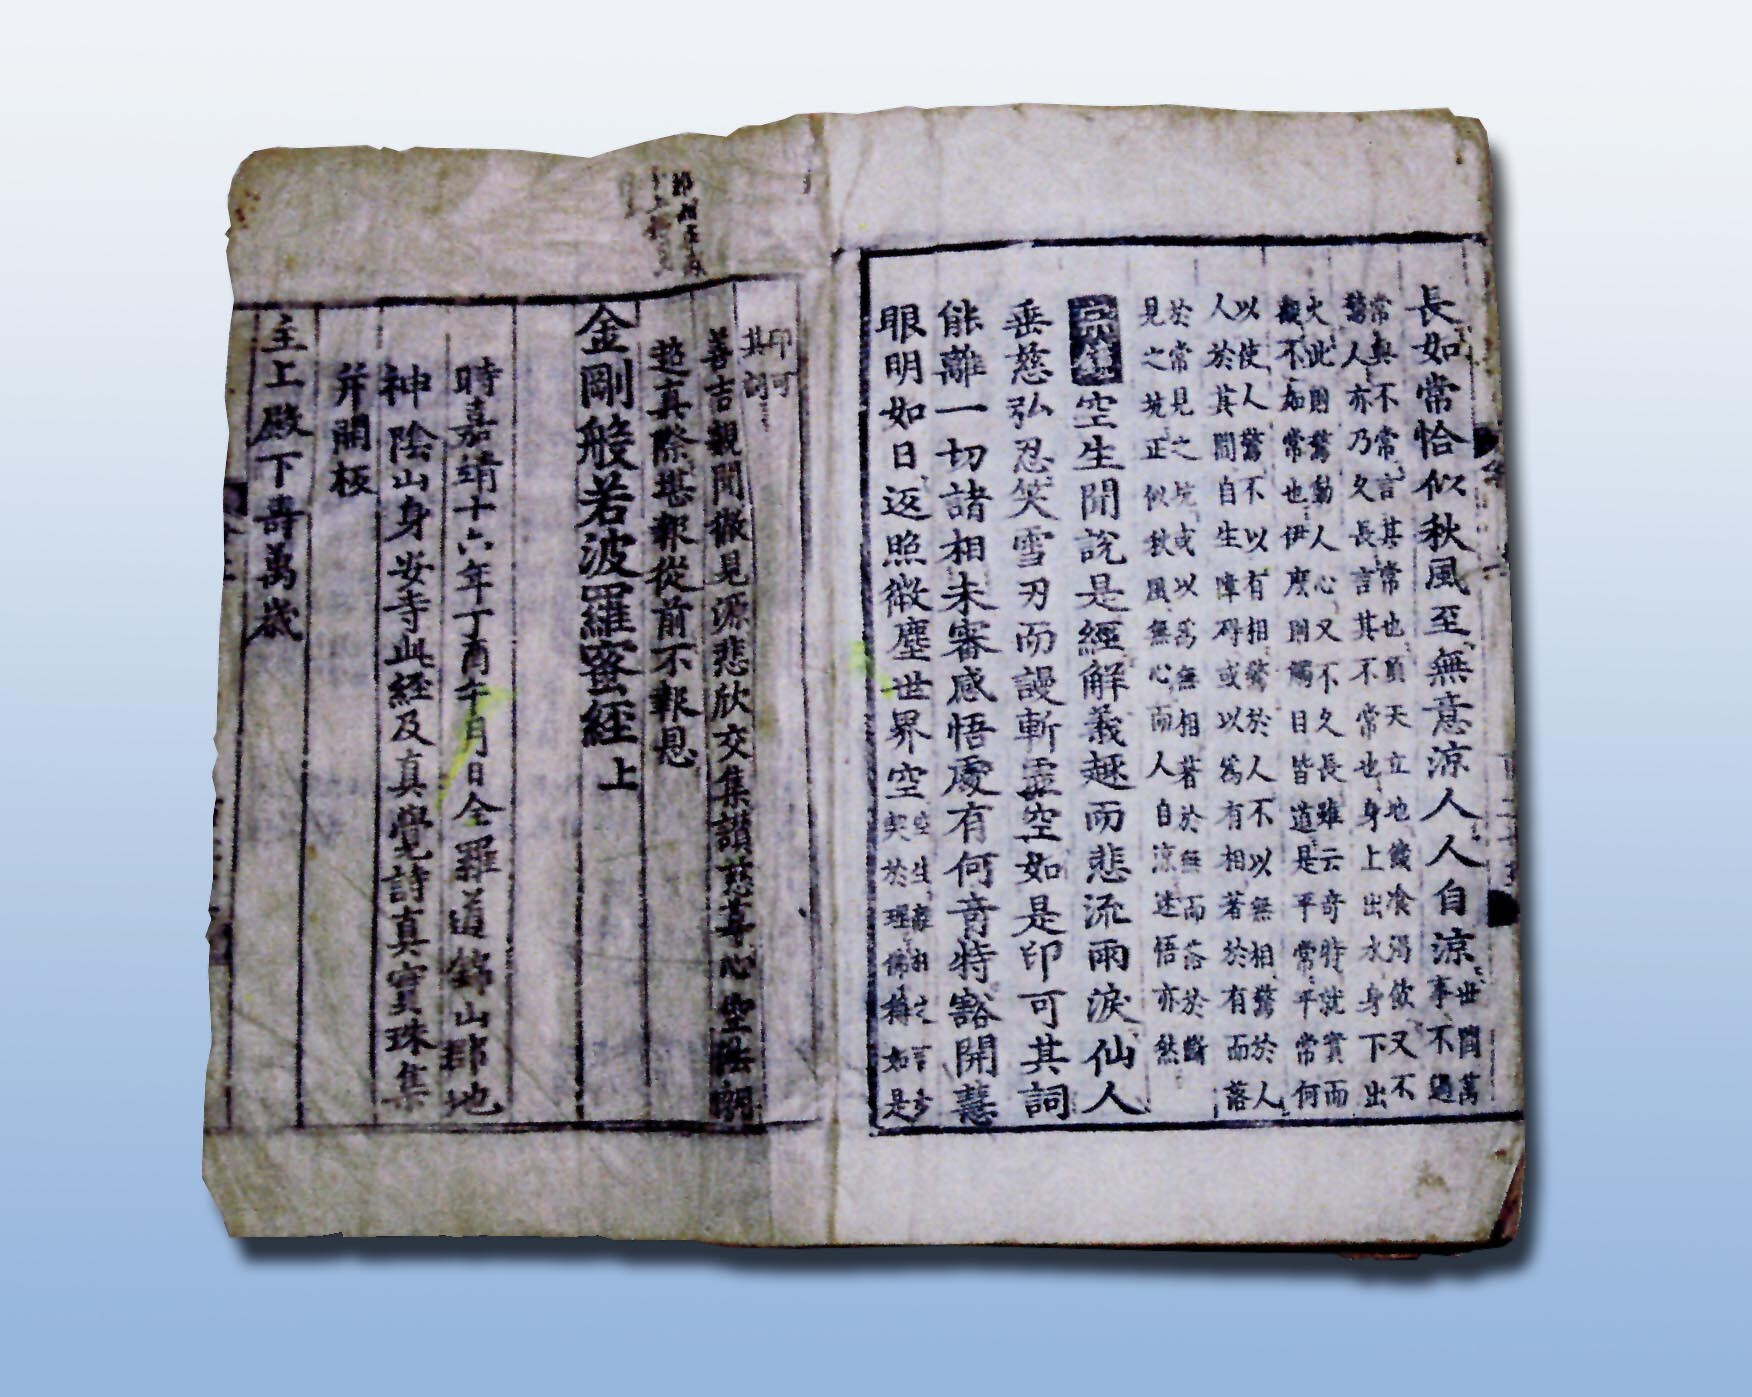 長如常恰似秋風至無意涼人人自涼
世間萬
事不過
常與不常言其常也頭天立地饑飡渴飲又不
驚人亦乃久長言其不常也身上出水身下出
火此則驚動人心又不久長雖云奇特就實而
觀不如常也伊麽則觸目皆道是平常平常何
以使人驚不以有相驚於人不以無相驚於人
人於其間自生障碍或以爲有相著於有而落
於常見之坑或以爲無相著於無而落於斷
見之坑正似秋風無心而人自凉迷悟亦然
空生聞說是經解義趣而悲流雨淚仙人
垂慈弘忍笑雪刃而謾斬虛空如是印可其詞
能離一切諸相未審感悟處有何奇特豁開慧
眼明如日返照微塵世界空
空生離相之言
契於理佛稱如是
印可
其詞
善吉親聞徹見源悲欣交集讃慈尊心空法朗
超真際堪報從前不報恩
金剛般若波羅蜜經上
時嘉靖十六年丁酉午月日全羅道錦山郡地
神陰山身安寺此経及真覺詩真實珠集
并開板
主上殿下壽萬歲